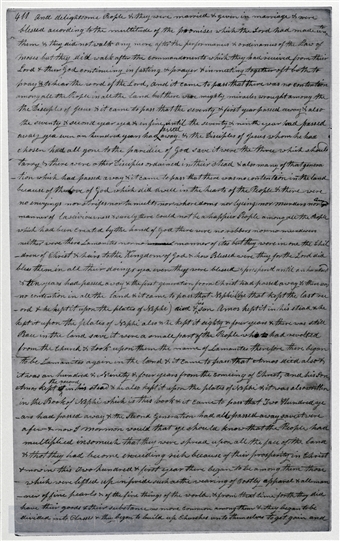 411 and delightsome People & they were married & given in marriage & were
blessed according to the multitude of the promises which the Lord had made unto
them & they did not walk any more after the performances & ordinances of the Law of
Moses but they did walk after the commandments which they had received from their
Lord & their God continuing in fasting & prayer & in meeting together oft both to
pray & to hear the word of the Lord, and it came to pass that there was no contention
among all the People in all the Land but there was mighty miracles wrought among
the Disciples of Jesus & it came to pass that the seventy & first year passed away & also
the seventy & second year yea & in fine until the seventy & ninth year had passed
away yea even an hundred years had passed away & the Disciples of Jesus whom he had
chosen had all gone to the paradise of God save it were the three which should
tarry & there were other Disciples ordained in their stead & also many of that genera
tion which had passed away & it came to pass that there was no contention in the land
because of the love of God which did dwell in the hearts of the People & there were
no envyings nor strifes nor tumults nor whoredoms nor lyings nor murders nor
manner of Lasciviousness & surely there could not be a happier People among all the People
which had been created by the hand of God there were no robbers nor no murderers
neither were there Lamanites nor no manner of ites but they were in one the Chil
dren of Christ & heirs to the Kingdom of God & how Blessed were they for the Lord did
bless them in all their doings yea even they were blessed & prospered until an hundred
& ten years had passed away & the first generation from Christ had passed away & there was
no contention in all the land & it came to pass that Nephi he that kept the last re
cord & he kept it upon the plates of Nephi died & his Son Amos kept it in his stead & he
kept it upon the plates of Nephi also & he kept it eighty & four years & there was still
Peace in the land save it were a small part of the People who had revolted
from the Church & took upon them the name of Lamanites therefore there began
to be Lamanites again in the land & it came to pass that Amos died also &
it was an hundred & Ninety & four years from the coming of Christ, and his Son
Amos kept the record in his stead & he also kept it upon the plates of Nephi & it was also written
in the Book of Nephi which is this book & it came to pass that two Hundred ye
ars had passed away & the Second Generation had all passed away save it were
a few & now I Mormon would that ye should know that the People had
multiplied insomuch that they were spread upon all the face of the land
& that they had become exceeding rich because of their prosperity in Christ
& now in this two hundred & first year there began to be among them those
which were lifted up in pride such as the wearing of costly apparel & all man
ner of fine pearls & of the fine things of the world & from that time forth they did
have their goods & their substance no more common among them & they began to be
divided into Classes & they began to build up Churches unto themselves to get gain and